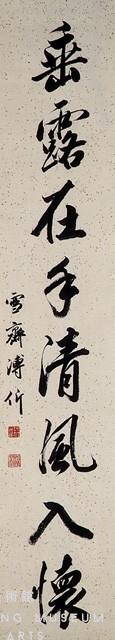 垂露在手清風入懷
雪齋溥伒
術館
NG MUSEUM
ARTS